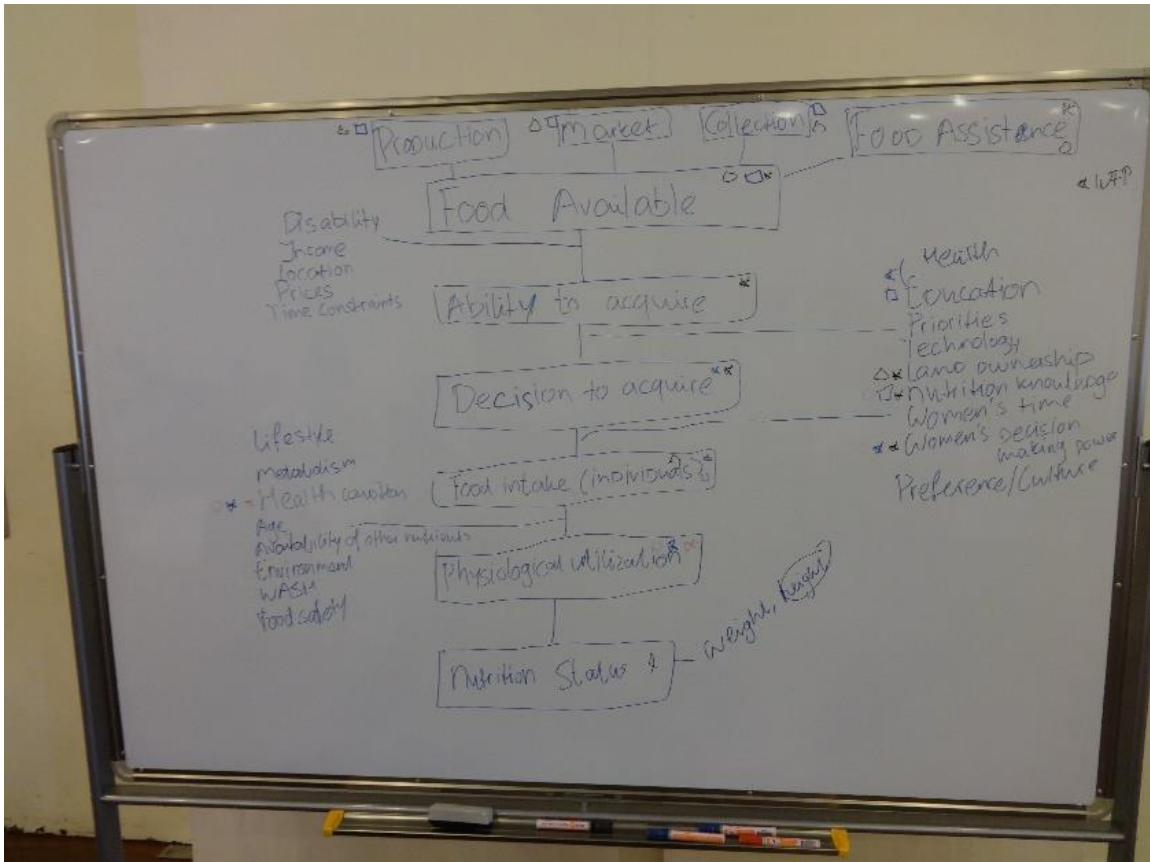 Production
Market
Collection
Food Assistance
Food Available
WFP
Disability
Income
Location
Prices
Time Constraints
Ability to acquire
Health
Education
Priorities
Technology
Land ownership
Nutrition knowledge
Women's time
Women's Decision
making power
Preference/Culture
Decision to acquire
Lifestyle
Metabolism
Health condition
Age
Availability of other nutrients
Environment
WASH
Food safety
Food intake (individuals)
Physiological utilization
Nutrition Status
weight, height